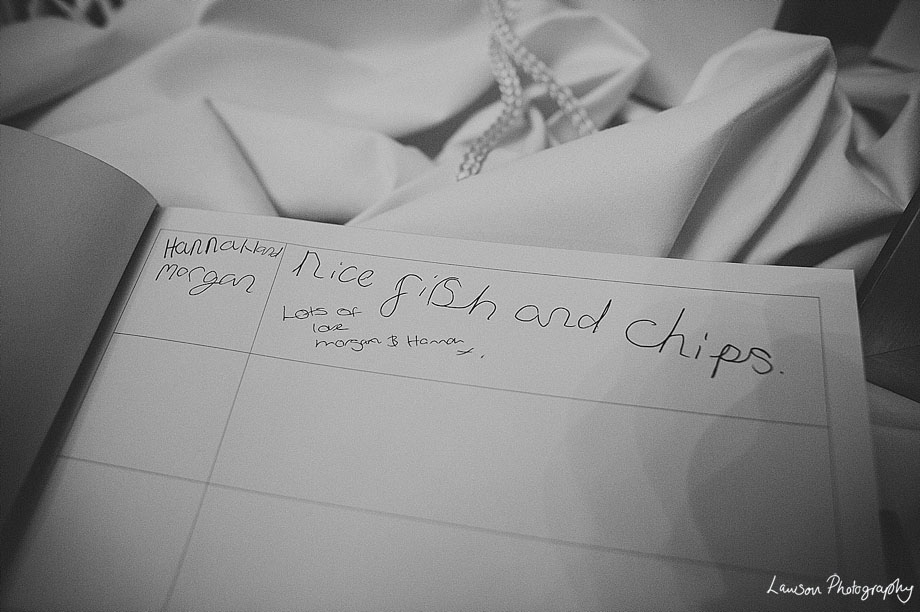 Hannah and
morgan
nice fish and chips.
Lots of
love
morgan & Hannah
x.
Lawson Photography